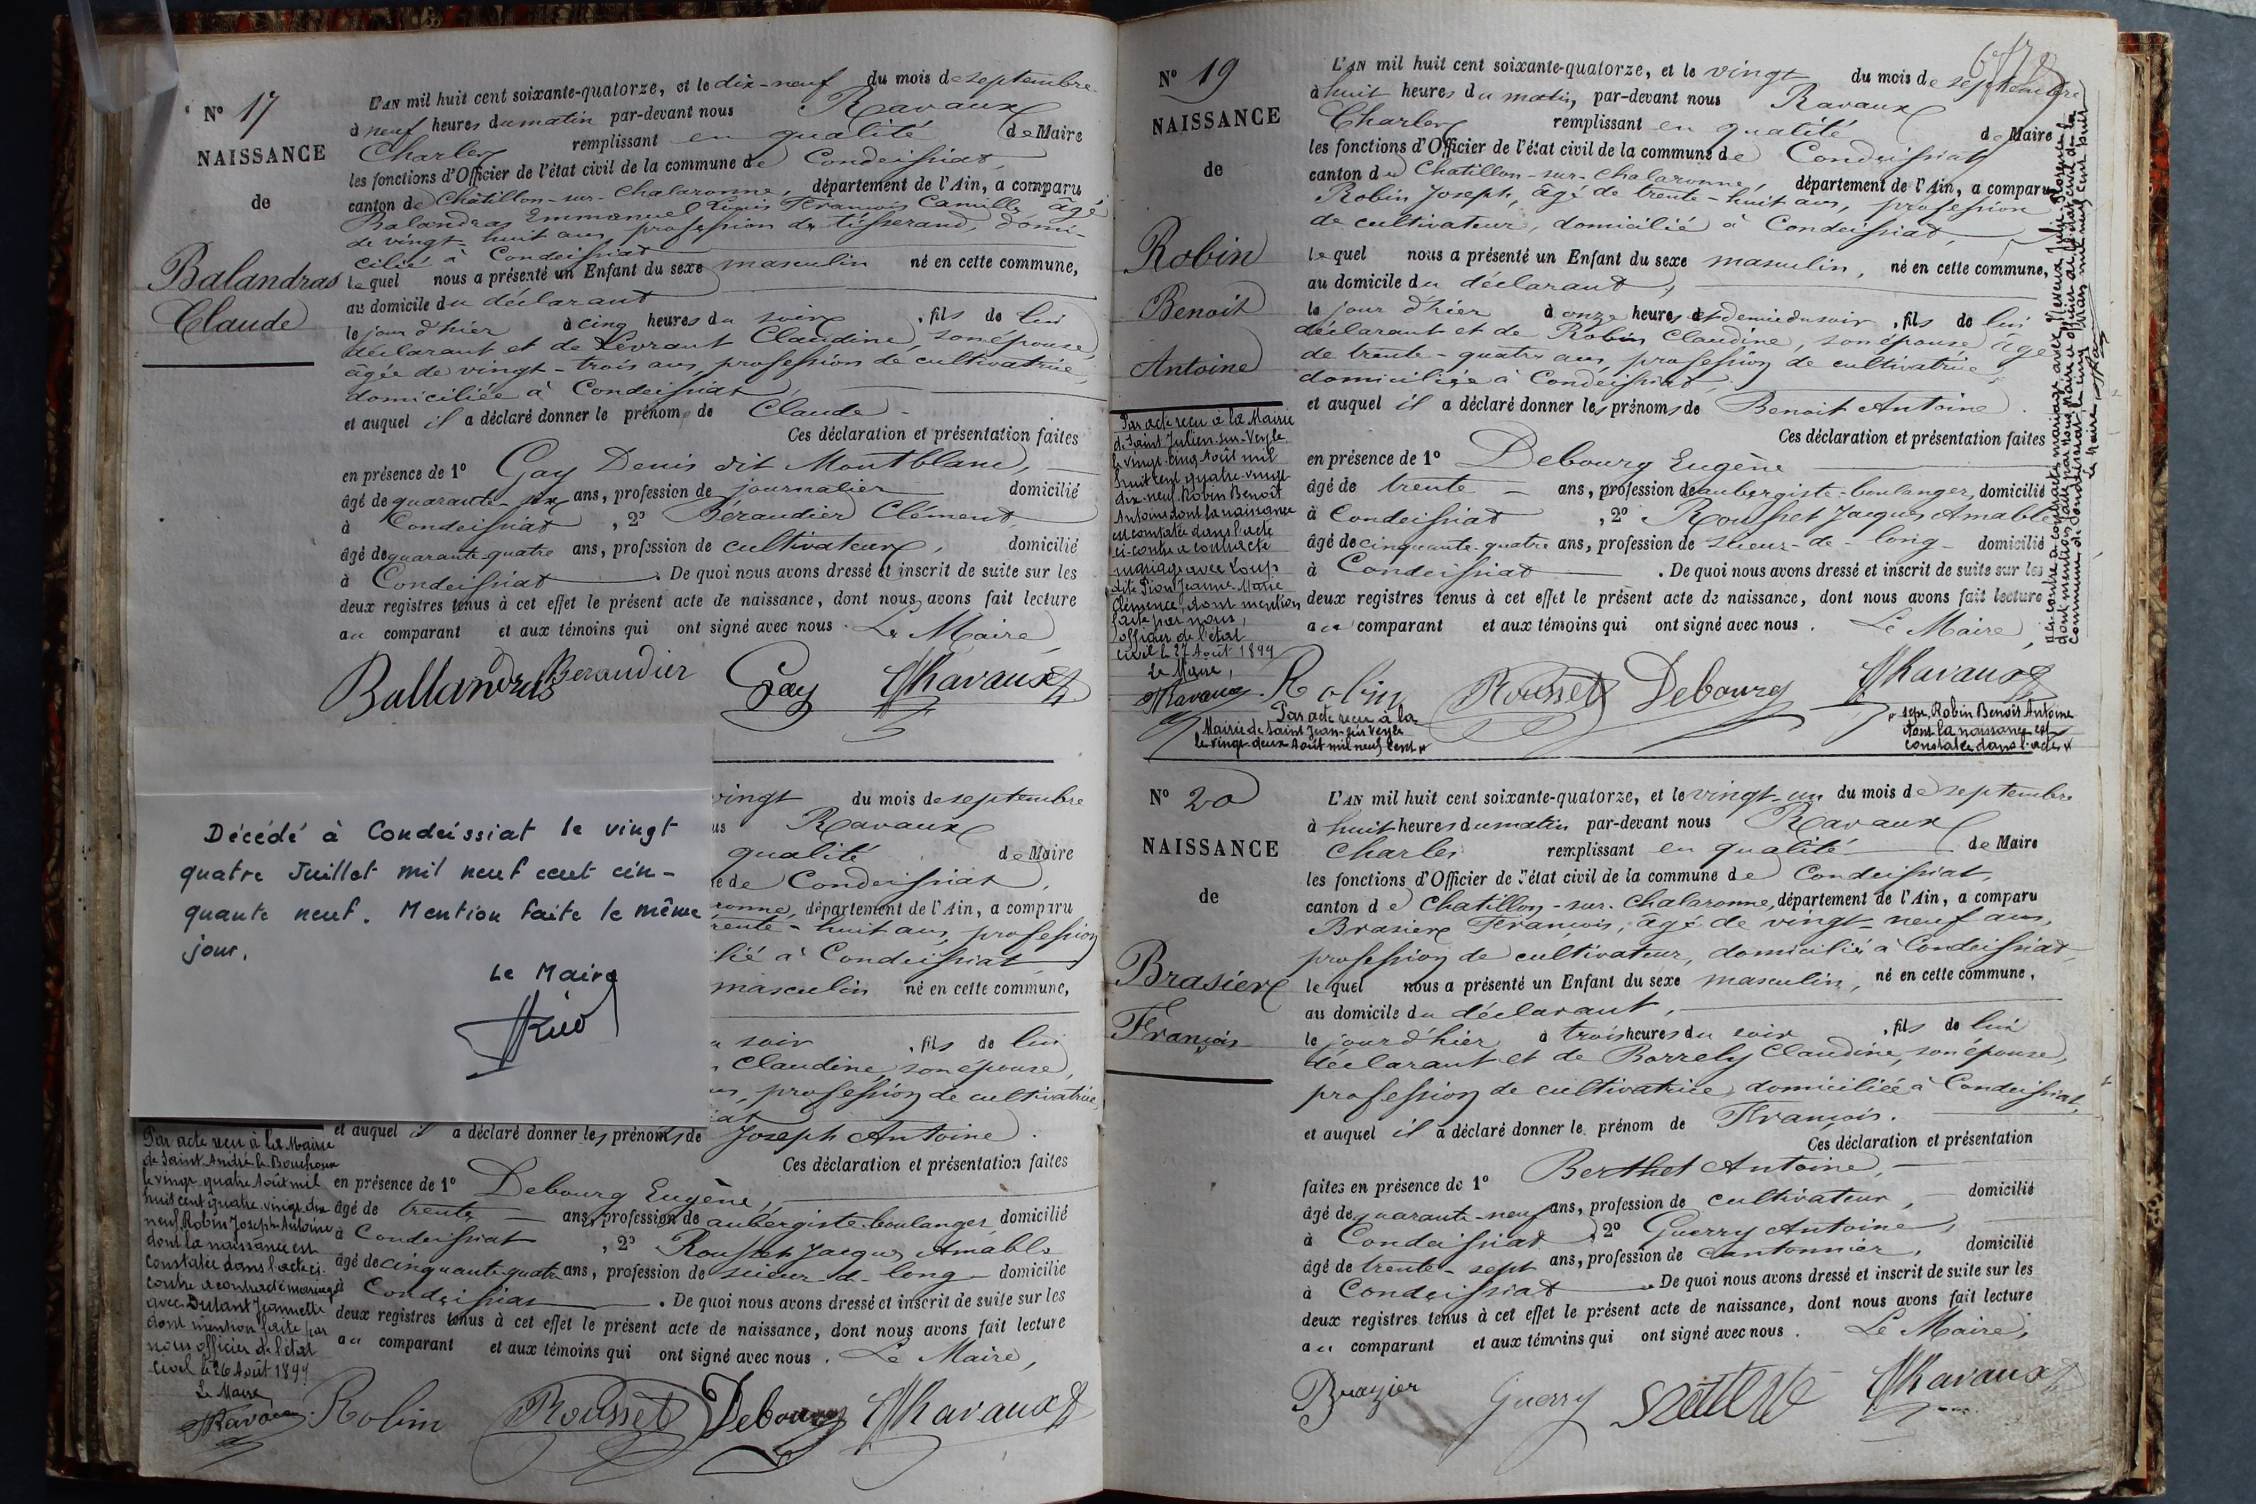 N° 17
NAISSANCE
de
Balandras
Claude
L'AN mil huit cent soixante-quatorze, et le dix-neuf du mois de septembre
à neuf heures du matin par-devant nous Ravaux
Charles remplissant en qualité de Maire
les fonctions d'Officier de l'état civil de la commune de Condeissiat,
canton de Châtillon-sur-Chalaronne, département de l'Ain, a comparu
Balandras Emmanuel Louis François Camille, âgé
de vingt-huit ans, profession de tisserand, domi-
cilié à Condeissiat
lequel nous a présenté un Enfant du sexe masculin né en cette commune,
au domicile du déclarant
le jour d'hier à cinq heures du soir, fils de lui
déclarant et de Levraut Claudine, son épouse,
âgée de vingt-trois ans, profession de cultivatrice,
domiciliée à Condeissiat
et auquel il a déclaré donner le prénom de Claude.
Ces déclaration et présentation faites
en présence de 1° Gay Denis dit Montblanc,
âgé de quarante-six ans, profession de journalier domicilié
à Condeissiat, 2° Béraudier Clément,
âgé de quarante-quatre ans, profession de cultivateur, domicilié
à Condeissiat. De quoi nous avons dressé et inscrit de suite sur les
deux registres tenus à cet effet le présent acte de naissance, dont nous avons fait lecture
au comparant et aux témoins qui ont signé avec nous. Le Maire,
Ballandras Beraudier Gay Ravaux
Décédé à Condeissiat le vingt
quatre Juillet mil neuf cent cin-
quante neuf. Mention faite le même
jour.
Le Maire
vingt du mois de septembre
us Ravaux
qualité de Maire
e de Condeissiat,
ronne, département de l'Ain, a comparu
rente-huit ans, profession
lié à Condeissiat
masculin né en cette commune,
soir, fils de lui
Claudine, son épouse,
profession de cultivatrice,
iat
et auquel il a déclaré donner les prénoms de Joseph Antoine.
Ces déclaration et présentation faites
en présence de 1° Debourg Eugène,
âgé de trente ans, profession de aubergiste-boulanger, domicilié
à Condeissiat, 2° Rousset Jacques Amable
âgé de cinquante-quatre ans, profession de scieur-de-long domicilié
à Condeissiat. De quoi nous avons dressé et inscrit de suite sur les
deux registres tenus à cet effet le présent acte de naissance, dont nous avons fait lecture
au comparant et aux témoins qui ont signé avec nous. Le Maire,
Par acte reçu à la Mairie
de Saint André le Bouchoux
le vingt quatre Août mil
huit cent quatre vingt dix
neuf, Robin Joseph Antoine
dont la naissance est
constatée dans l'acte ci-
contre a contracté mariage
avec Dutant Jeannette
dont mention faite par
nous officier de l'état
civil le 26 Août 1899
Le Maire
Ravaux
Robin Rousset Debourg Ravaux
N° 19
NAISSANCE
de
Robin
Benoit
Antoine
L'AN mil huit cent soixante-quatorze, et le vingt du mois de septembre
à huit heures du matin, par-devant nous Ravaux
Charles remplissant en qualité de Maire
les fonctions d'Officier de l'état civil de la commune de Condeissiat
canton de Chatillon-sur-Chalaronne, département de l'Ain, a comparu
Robin Joseph, âgé de trente-huit ans, profession
de cultivateur, domicilié à Condeissiat,
lequel nous a présenté un Enfant du sexe masculin, né en cette commune,
au domicile du déclarant,
le jour d'hier à onze heures et demie du soir, fils de lui
déclarant et de Robin Claudine, son épouse, âgée
de trente-quatre ans, profession de cultivatrice,
domiciliée à Condeissiat,
et auquel il a déclaré donner les prénoms de Benoit Antoine.
Ces déclaration et présentation faites
en présence de 1° Debourg Eugène
âgé de trente ans, profession de aubergiste-boulanger, domicilié
à Condeissiat, 2° Rousset Jacques Amable
âgé de cinquante-quatre ans, profession de scieur-de-long domicilié
à Condeissiat. De quoi nous avons dressé et inscrit de suite sur les
deux registres tenus à cet effet le présent acte de naissance, dont nous avons fait lecture
au comparant et aux témoins qui ont signé avec nous. Le Maire,
Par acte reçu à la Mairie
de Saint Julien-sur-Veyle
le vingt-cinq Août mil
huit cent quatre-vingt
dix-neuf, Robin Benoît
Antoine dont la naissance
est constatée dans l'acte
ci-contre a contracté
mariage avec Loup
dite Pion Jeanne Marie
Clémence, dont mention
faite par nous,
officier de l'état
civil le 27 Août 1899
Le Maire,
Ravaux
Robin Rousset Debourg Ravaux
Par acte reçu à la
Mairie de Saint Jean-sur-Veyle
le vingt-deux Août mil neuf cent
sept, Robin Benoît Antoine
dont la naissance est
constatée dans l'acte
ci-contre a contracté mariage avec
dont mention faite par nous, Maire, officier de l'état civil de la
commune de Condeissiat, le cinq mil neuf cent huit
Le Maire,
N° 20
NAISSANCE
de
Brasier
François
L'AN mil huit cent soixante-quatorze, et le vingt-un du mois de septembre
à huit heures du matin par-devant nous Ravaux
Charles remplissant en qualité de Maire
les fonctions d'Officier de l'état civil de la commune de Condeissiat,
canton de Chatillon-sur-Chalaronne, département de l'Ain, a comparu
Brasier François, âgé de vingt-neuf ans,
profession de cultivateur, domicilié à Condeissiat,
lequel nous a présenté un Enfant du sexe masculin, né en cette commune,
au domicile du déclarant,
le jour d'hier à trois heures du soir, fils de lui
déclarant et de Borrely Claudine, son épouse,
profession de cultivatrice, domiciliée à Condeissiat,
et auquel il a déclaré donner le prénom de François.
Ces déclaration et présentation
faites en présence de 1° Berthet Antoine,
âgé de quarante-neuf ans, profession de cultivateur, domicilié
à Condeissiat, 2° Guerry Antoine,
âgé de trente-sept ans, profession de cantonnier, domicilié
à Condeissiat. De quoi nous avons dressé et inscrit de suite sur les
deux registres tenus à cet effet le présent acte de naissance, dont nous avons fait lecture
au comparant et aux témoins qui ont signé avec nous. Le Maire,
Brazier Guerry Ravaux